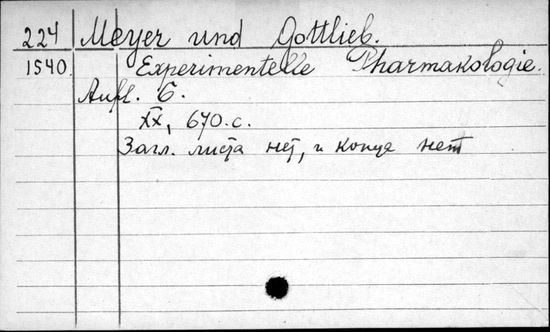 224 Meyer und Gottlieb.
1540. Experimentelle Pharmakologie.
Aufl. 6.
XX, 670.c.
Загл. листа нет, и конца нет